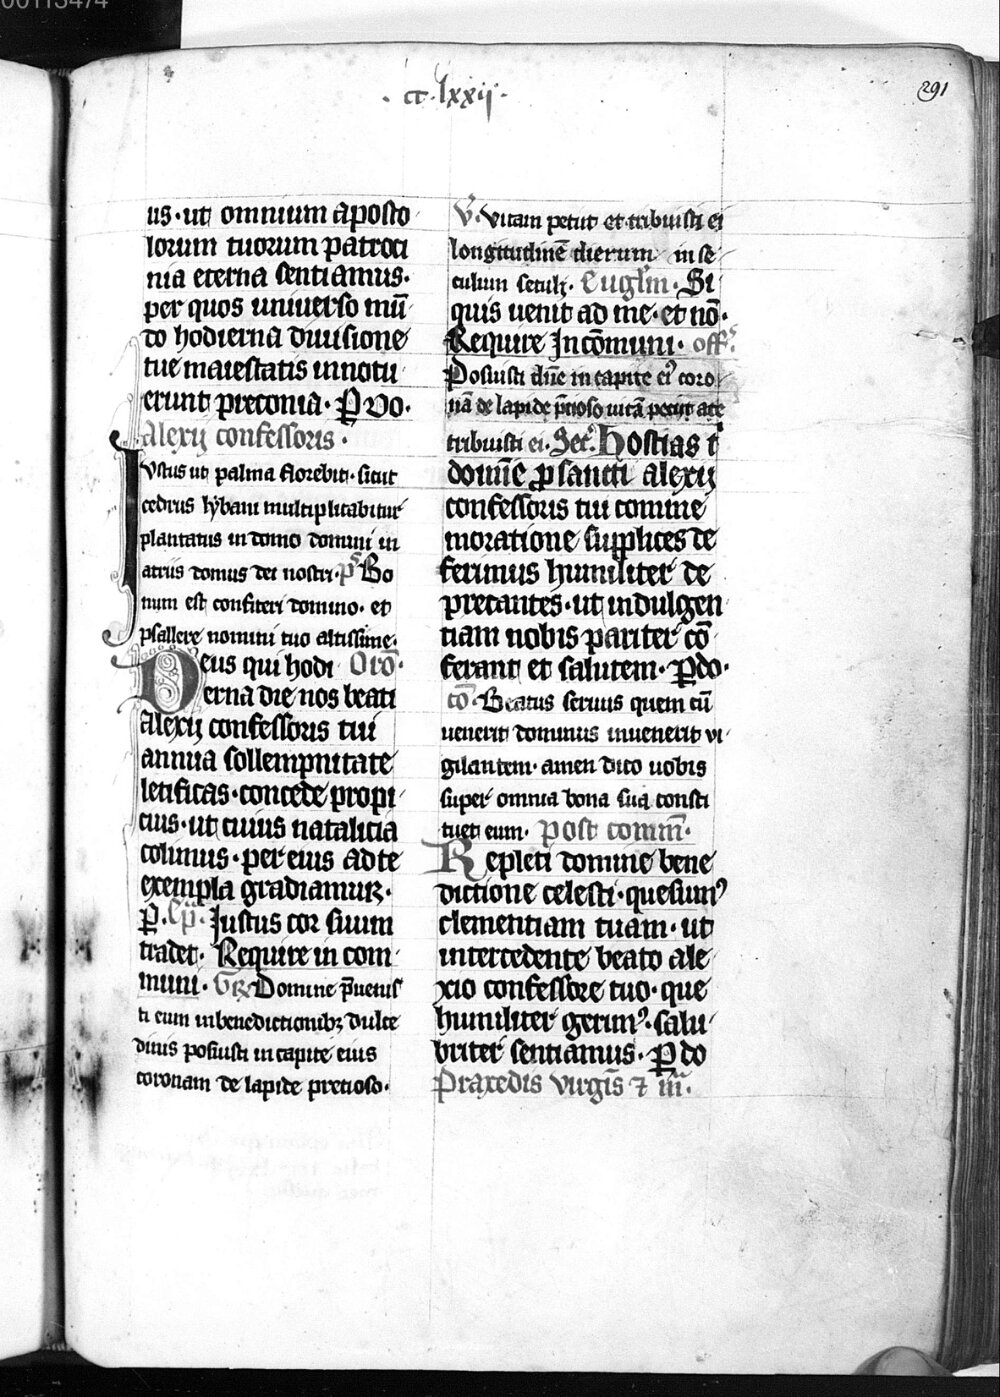 00113474
· cc · lxxij ·
291
us · ut omnium aposto
lorum tuorum patroci
nia eterna sentiamus ·
per quos universo mū
do hodierna divisione
tue maiestatis innotu
erunt preconia · P Vo ·
Alexij confessoris ·
Iustus ut palma florebit · sicut
cedrus lybani multiplicabitur
plantatus in domo domini in
atriis domus dei nostri · ps Bo
num est confiteri domino · et
psallere nomini tuo altissime ·
Deus qui hodi Orō ·
erna die nos beati
alexij confessoris tui
annua sollempnitate
letificas · concede propi
cius · ut cuius natalicia
colimus · per eius ad te
exempla gradiamur ·
P · Ep̄ · Justus cor suum
tradet · Require in com
muni · Gr Domine p̄uenis
ti eum in benedictionibꝫ dulce
dinis posuisti in capite eius
coronam de lapide precioso ·
V · Vitam petiit et tribuisti ei
longitudinē dierum in se
culum seculi · Euglm̄ · Si
quis uenit ad me · et nō ·
Require In cōmuni · off ·
Posuisti dn̄e in capite eiꝰ coro
nā de lapide p̄cioso uitā peciit a te
tribuisti ei · Sec̄ · Hostias t
domīe p sancti alexij
confessoris tui comme
moratione supplices de
ferimus humiliter de
precantes · ut indulgen
tiam nobis pariter cō
ferant et salutem · P do ·
cō · Beatus seruus quem cū
uenerit dominus inuenerit vi
gilantem · amen dico uobis
super omnia bona sua consti
tuet eum · post commū ·
Repleti domine bene
dictione celesti · quesumꝰ
clementiam tuam · ut
intercedente beato ale
xio confessore tuo · que
humiliter gerimꝰ · salu
briter sentiamus · P do
Praxedis virgīs ⁊ m̄r ·